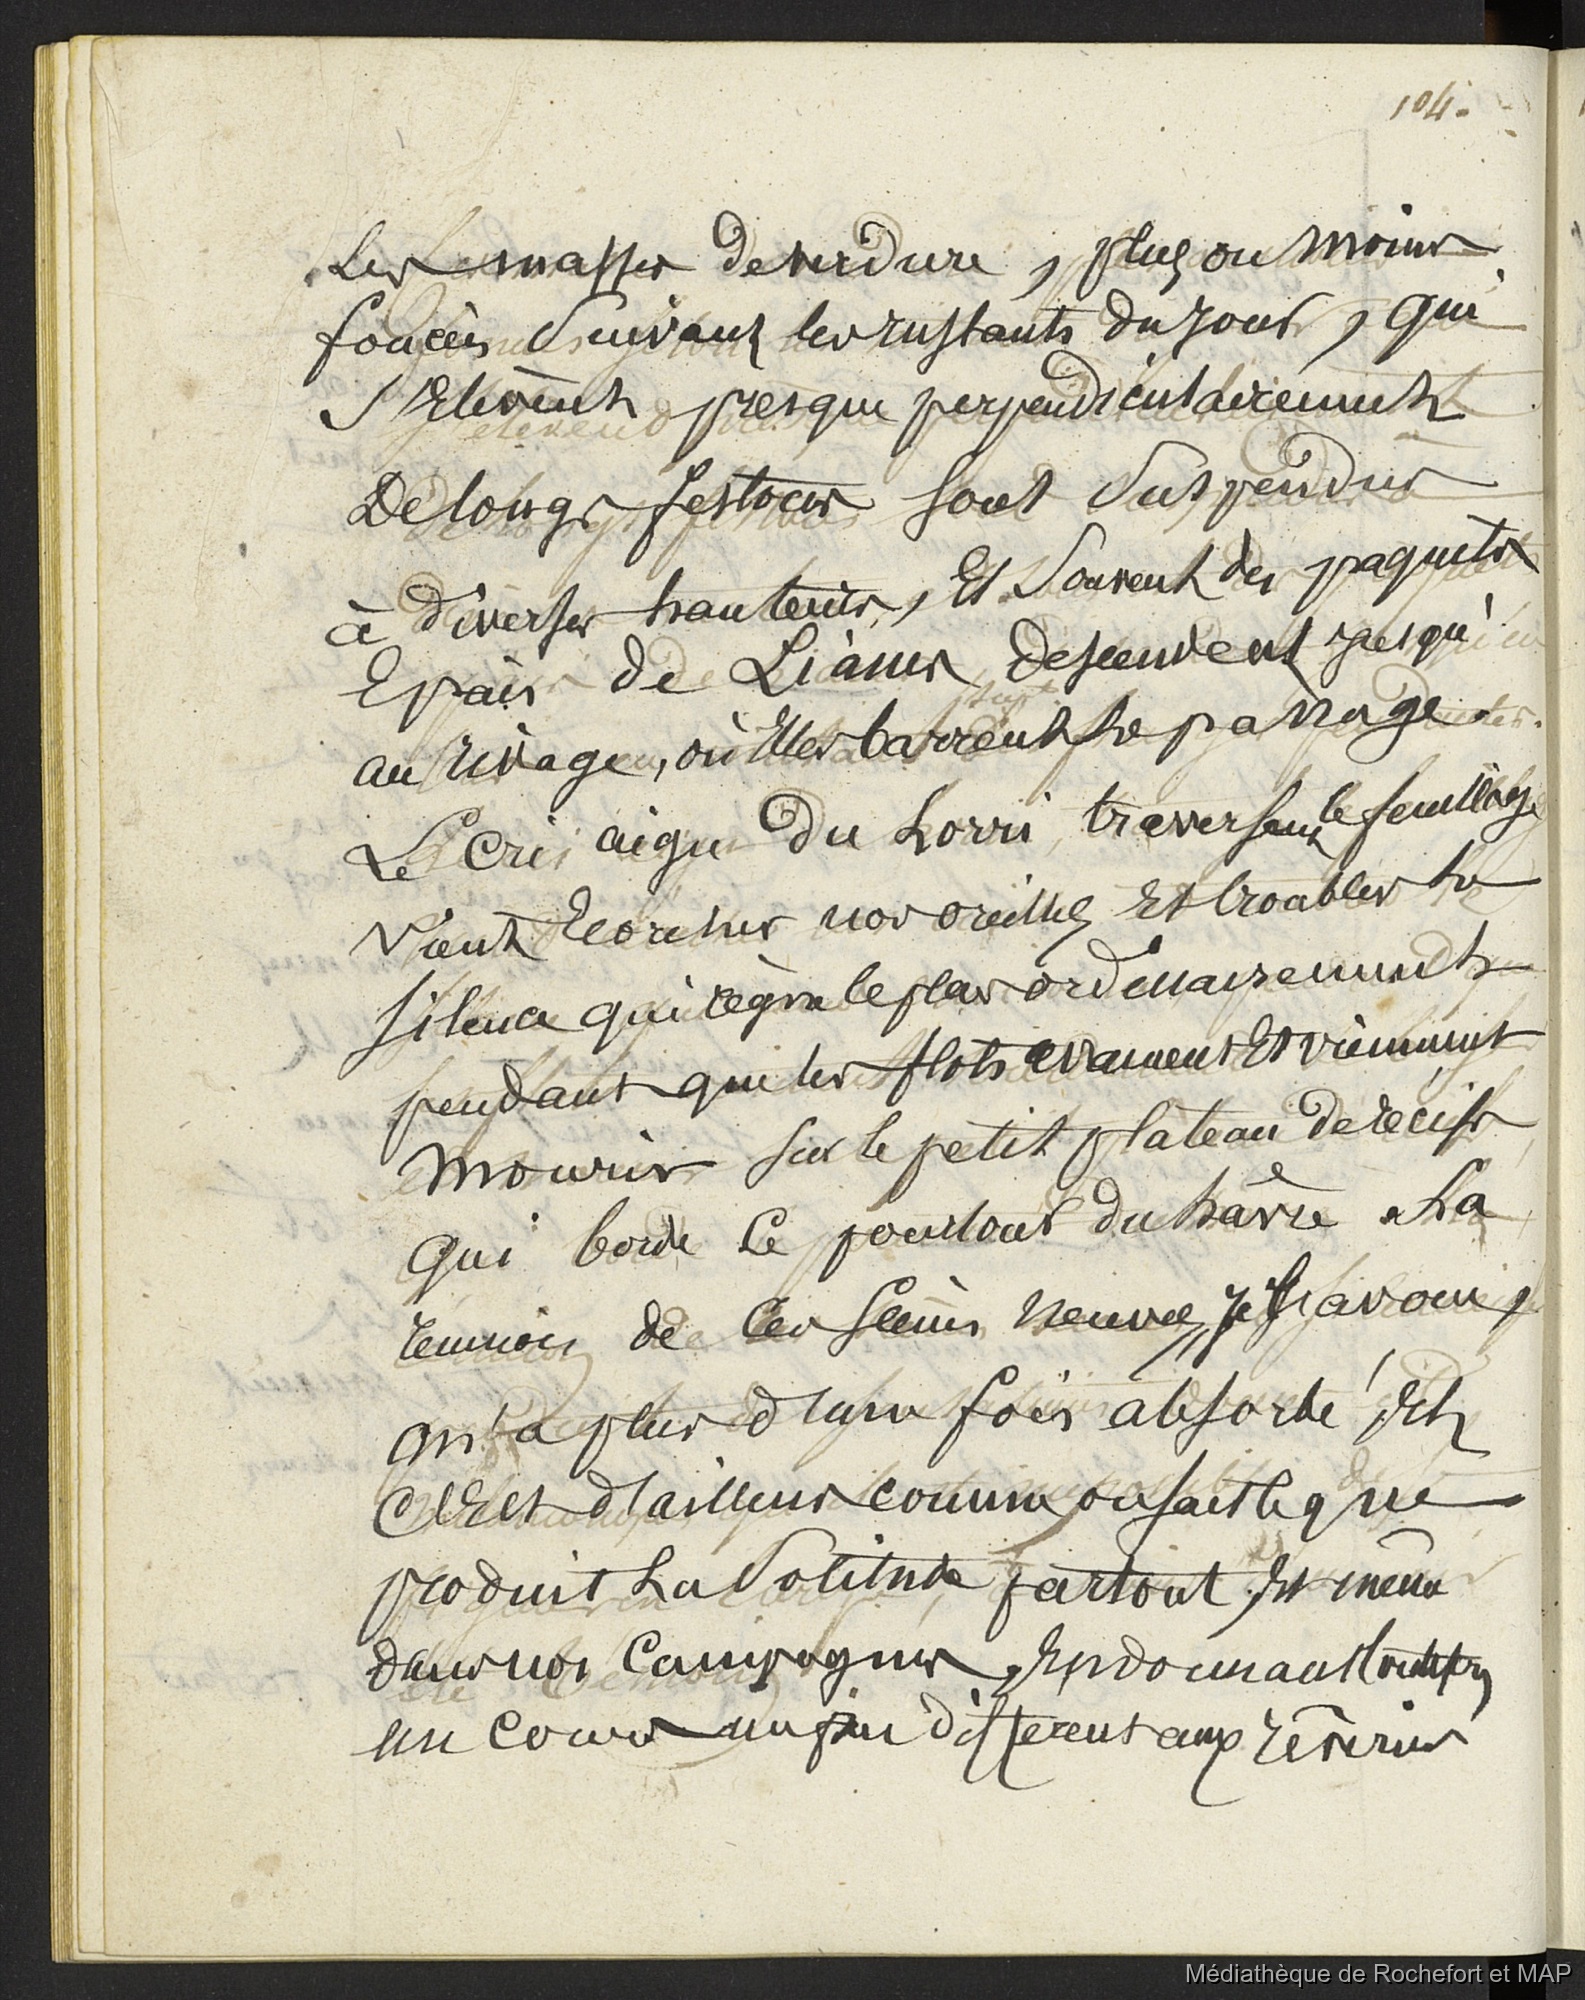 104.
Les masses de verdure, plus ou moins
foncées Suivant les instants du jour, qui
S'Elèvent presque perpendiculairement
De longs festons sont Suspendus
à diverses hauteurs, Et Souvent des paquets
Epais de Lianes descendent jusqu'
au rivage, où Elles barrent le passage.
Le Cri aigu Du Lorri, traversant le feuillage
Vient Ecorcher nos oreilles Et troubler le
silence qui règne le plus ordinairement
pendant que les flots Et viennent
mourir sur le petit plateau de récifs
qui borde Le pourtour du havre. La
réunion de Ces Scènes neuves, je l'avoue,
m'a plus d'une fois absorbé, Et
C'Est d'ailleurs comme on sait le que
produit La Solitude partout, Et même
dans nos Campagnes, En donnant
un Cours un peu différent aux rêveries
Médiathèque de Rochefort et MAP